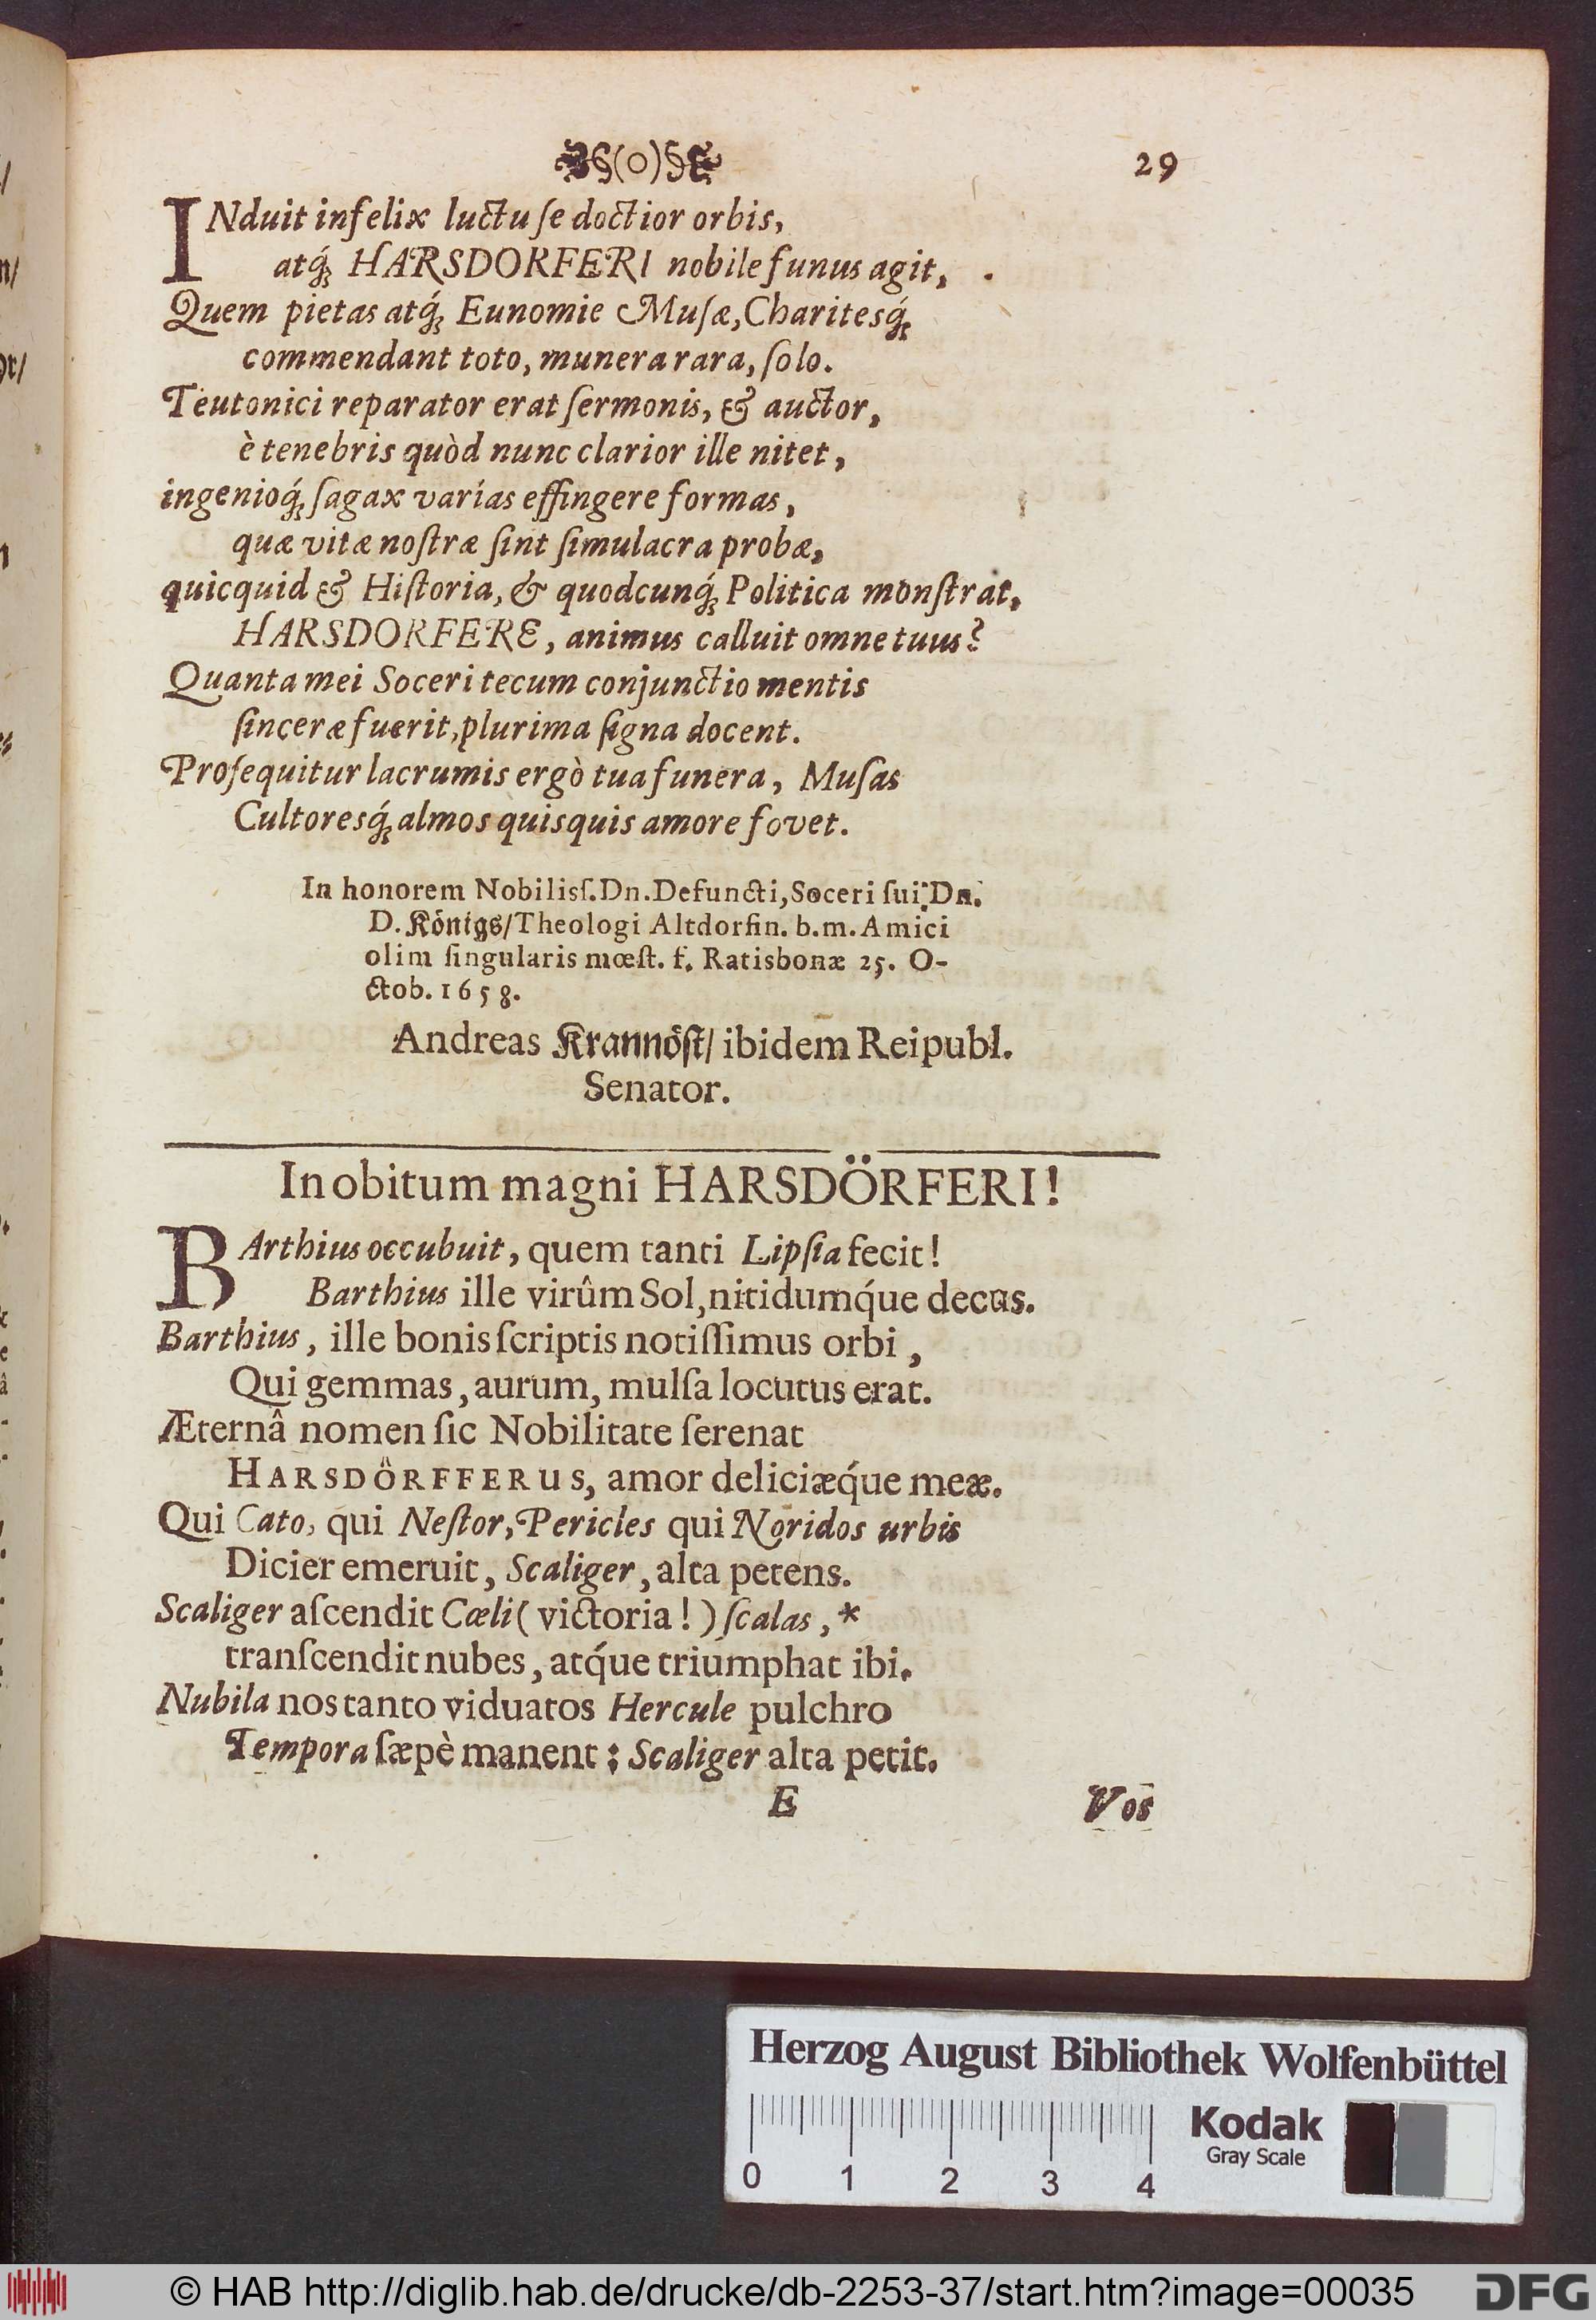 (o) 29
INduit infelix luctu ſe doctior orbis,
atq́; HARSDORFERI nobile funus agit,
Quem pietas atq́; Eunomie Muſæ, Charitesq́;
commendant toto, munera rara, ſolo.
Teutonici reparator erat ſermonis, & auctor,
è tenebris quòd nunc clarior ille nitet,
ingenioq́; ſagax varías effingere formas,
quæ vitæ noſtræ ſint ſimulacra probæ,
quicquid & Hiſtoria, & quodcunq́; Politica monſtrat,
HARSDORFERE, animus calluit omne tuus?
Quanta mei Soceri tecum conjunctio mentis
ſinceræ fuerit, plurima ſigna docent.
Proſequitur lacrumis ergò tua funera, Muſas
Cultoresq́; almos quisquis amore fovet.
In honorem Nobiliſſ. Dn. Defuncti, Soceri ſui, Dn.
D. Königs/ Theologi Altdorfin. b. m. Amici
olim ſingularis mœſt. f. Ratisbonæ 25. O-
ctob. 1658.
Andreas Krannöſt/ ibidem Reipubl.
Senator.
In obitum magni HARSDÖRFERI!
BArthius occubuit, quem tanti Lipſia fecit!
Barthius ille virûm Sol, nitidumq́ue decus.
Barthius, ille bonis ſcriptis notiſſimus orbi,
Qui gemmas, aurum, mulſa locutus erat.
Æternâ nomen ſic Nobilitate ſerenat
HARSDÖRFFERUS, amor deliciæq́ue meæ.
Qui Cato, qui Neſtor, Pericles qui Noridos urbis
Dicier emeruit, Scaliger, alta petens.
Scaliger aſcendit Cœli (victoria!) ſcalas, *
tranſcendit nubes, atq́ue triumphat ibi.
Nubila nos tanto viduatos Hercule pulchro
Tempora ſæpè manent; Scaliger alta petit.
E Vos
Herzog August Bibliothek Wolfenbüttel
Kodak
Gray Scale
0 1 2 3 4
© HAB http://diglib.hab.de/drucke/db-2253-37/start.htm?image=00035
DFG